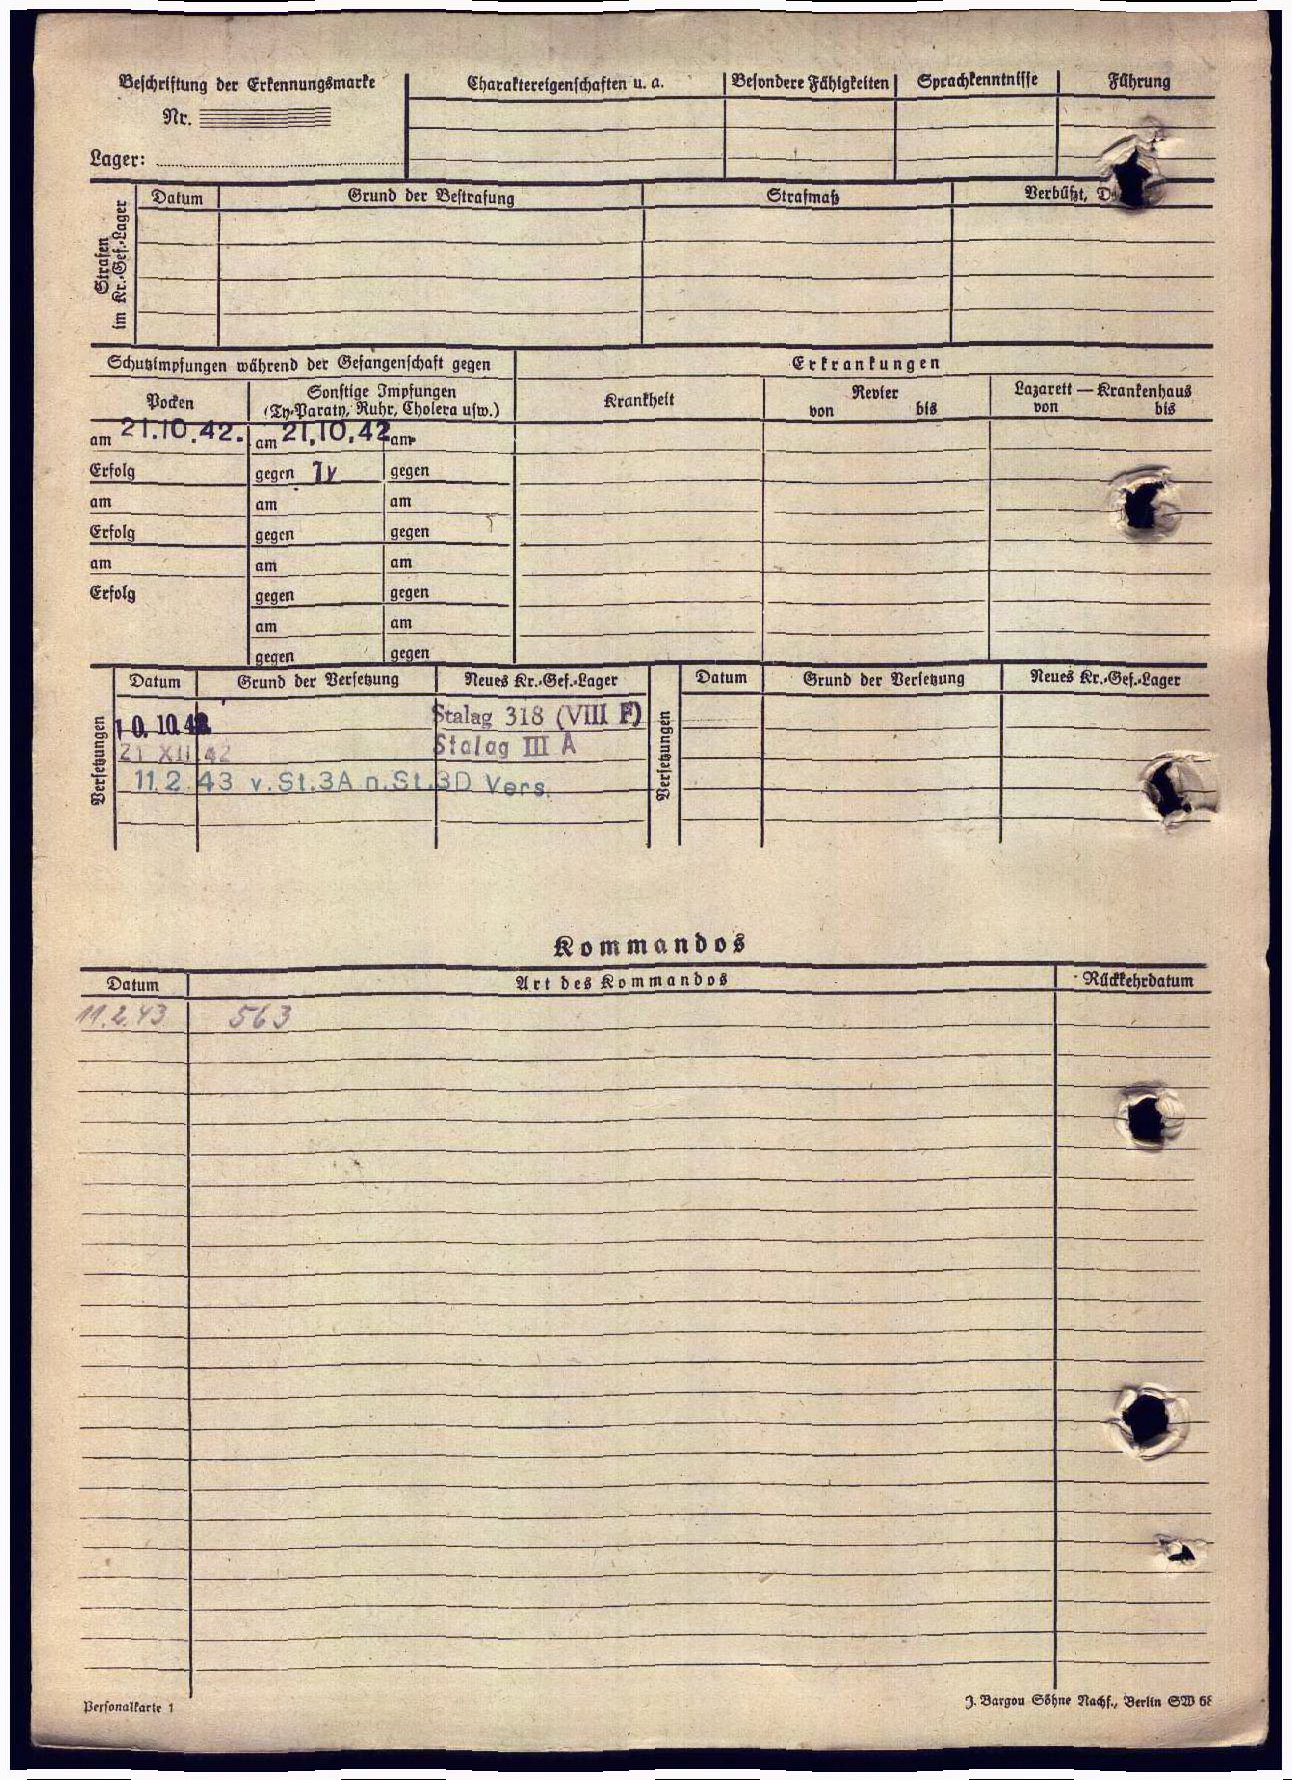 Beschriftung der Erkennungsmarke
Nr.
Lager:
Charaktereigenschaften u. a.
Besondere Fähigkeiten
Sprachkenntnisse
Führung
Strafen im Kr.-Gef.-Lager
Datum
Grund der Bestrafung
Strafmaß
Verbüßt, D
Schutzimpfungen während der Gefangenschaft gegen
Erkrankungen
Pocken
Sonstige Impfungen
(Ty-Paraty, Ruhr, Cholera usw.)
Krankheit
Revier
von bis
Lazarett — Krankenhaus
von bis
am 21.10.42. am 21.10.42 am
Erfolg gegen Ty gegen
am am am
Erfolg gegen gegen
am am am
Erfolg gegen gegen
am am
gegen gegen
Versetzungen
Datum Grund der Versetzung Neues Kr.-Gef.-Lager
10. 10. 42. Stalag 318 (VIII F)
21 XII 42 Stalag III A
11.2.43 v. St. 3A n. St. 3D Vers.
Versetzungen
Datum Grund der Versetzung Neues Kr.-Gef.-Lager
Kommandos
Datum Art des Kommandos Rückkehrdatum
11.2.43 563
Personalkarte 1
J. Bargou Söhne Nachf., Berlin SW 68